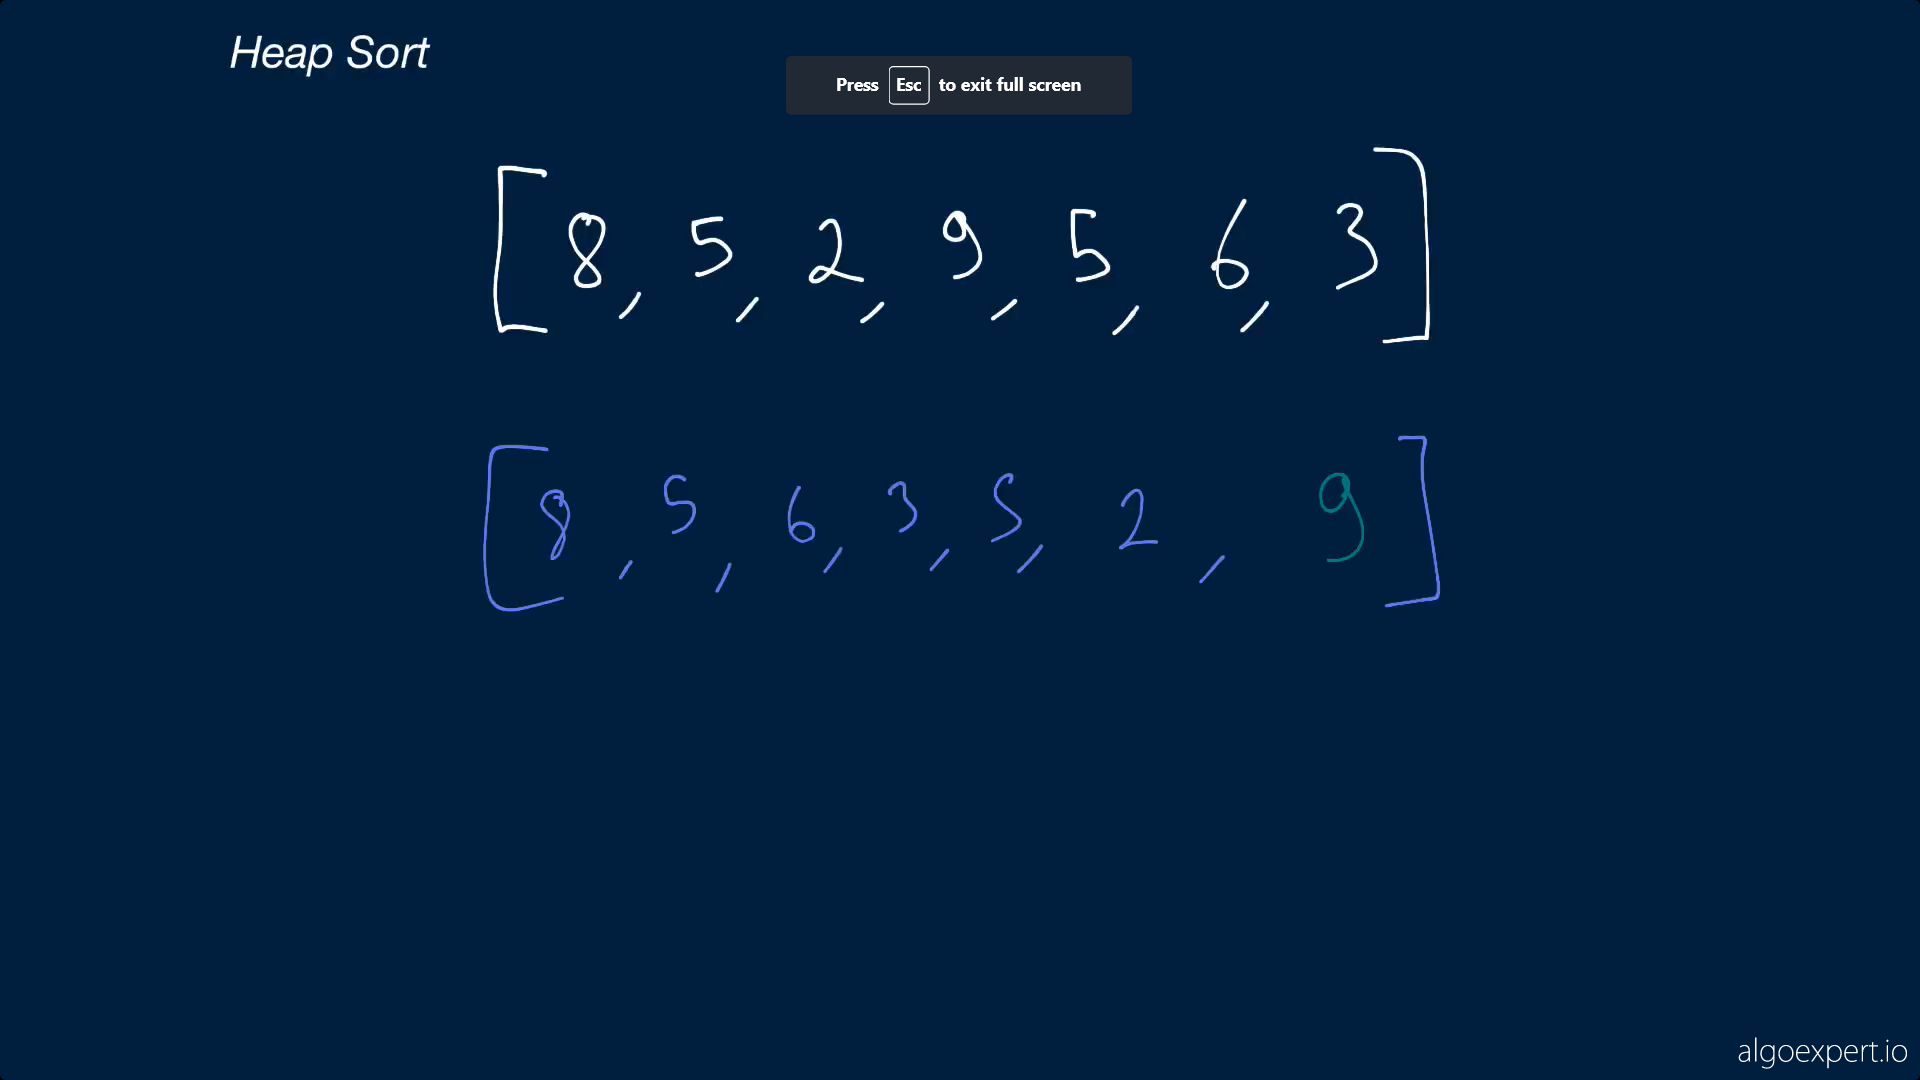 Heap Sort
Press Esc to exit full screen
[8, 5, 2, 9, 5, 6, 3]
[8, 5, 6, 3, 5, 2, 9]
algoexpert.io